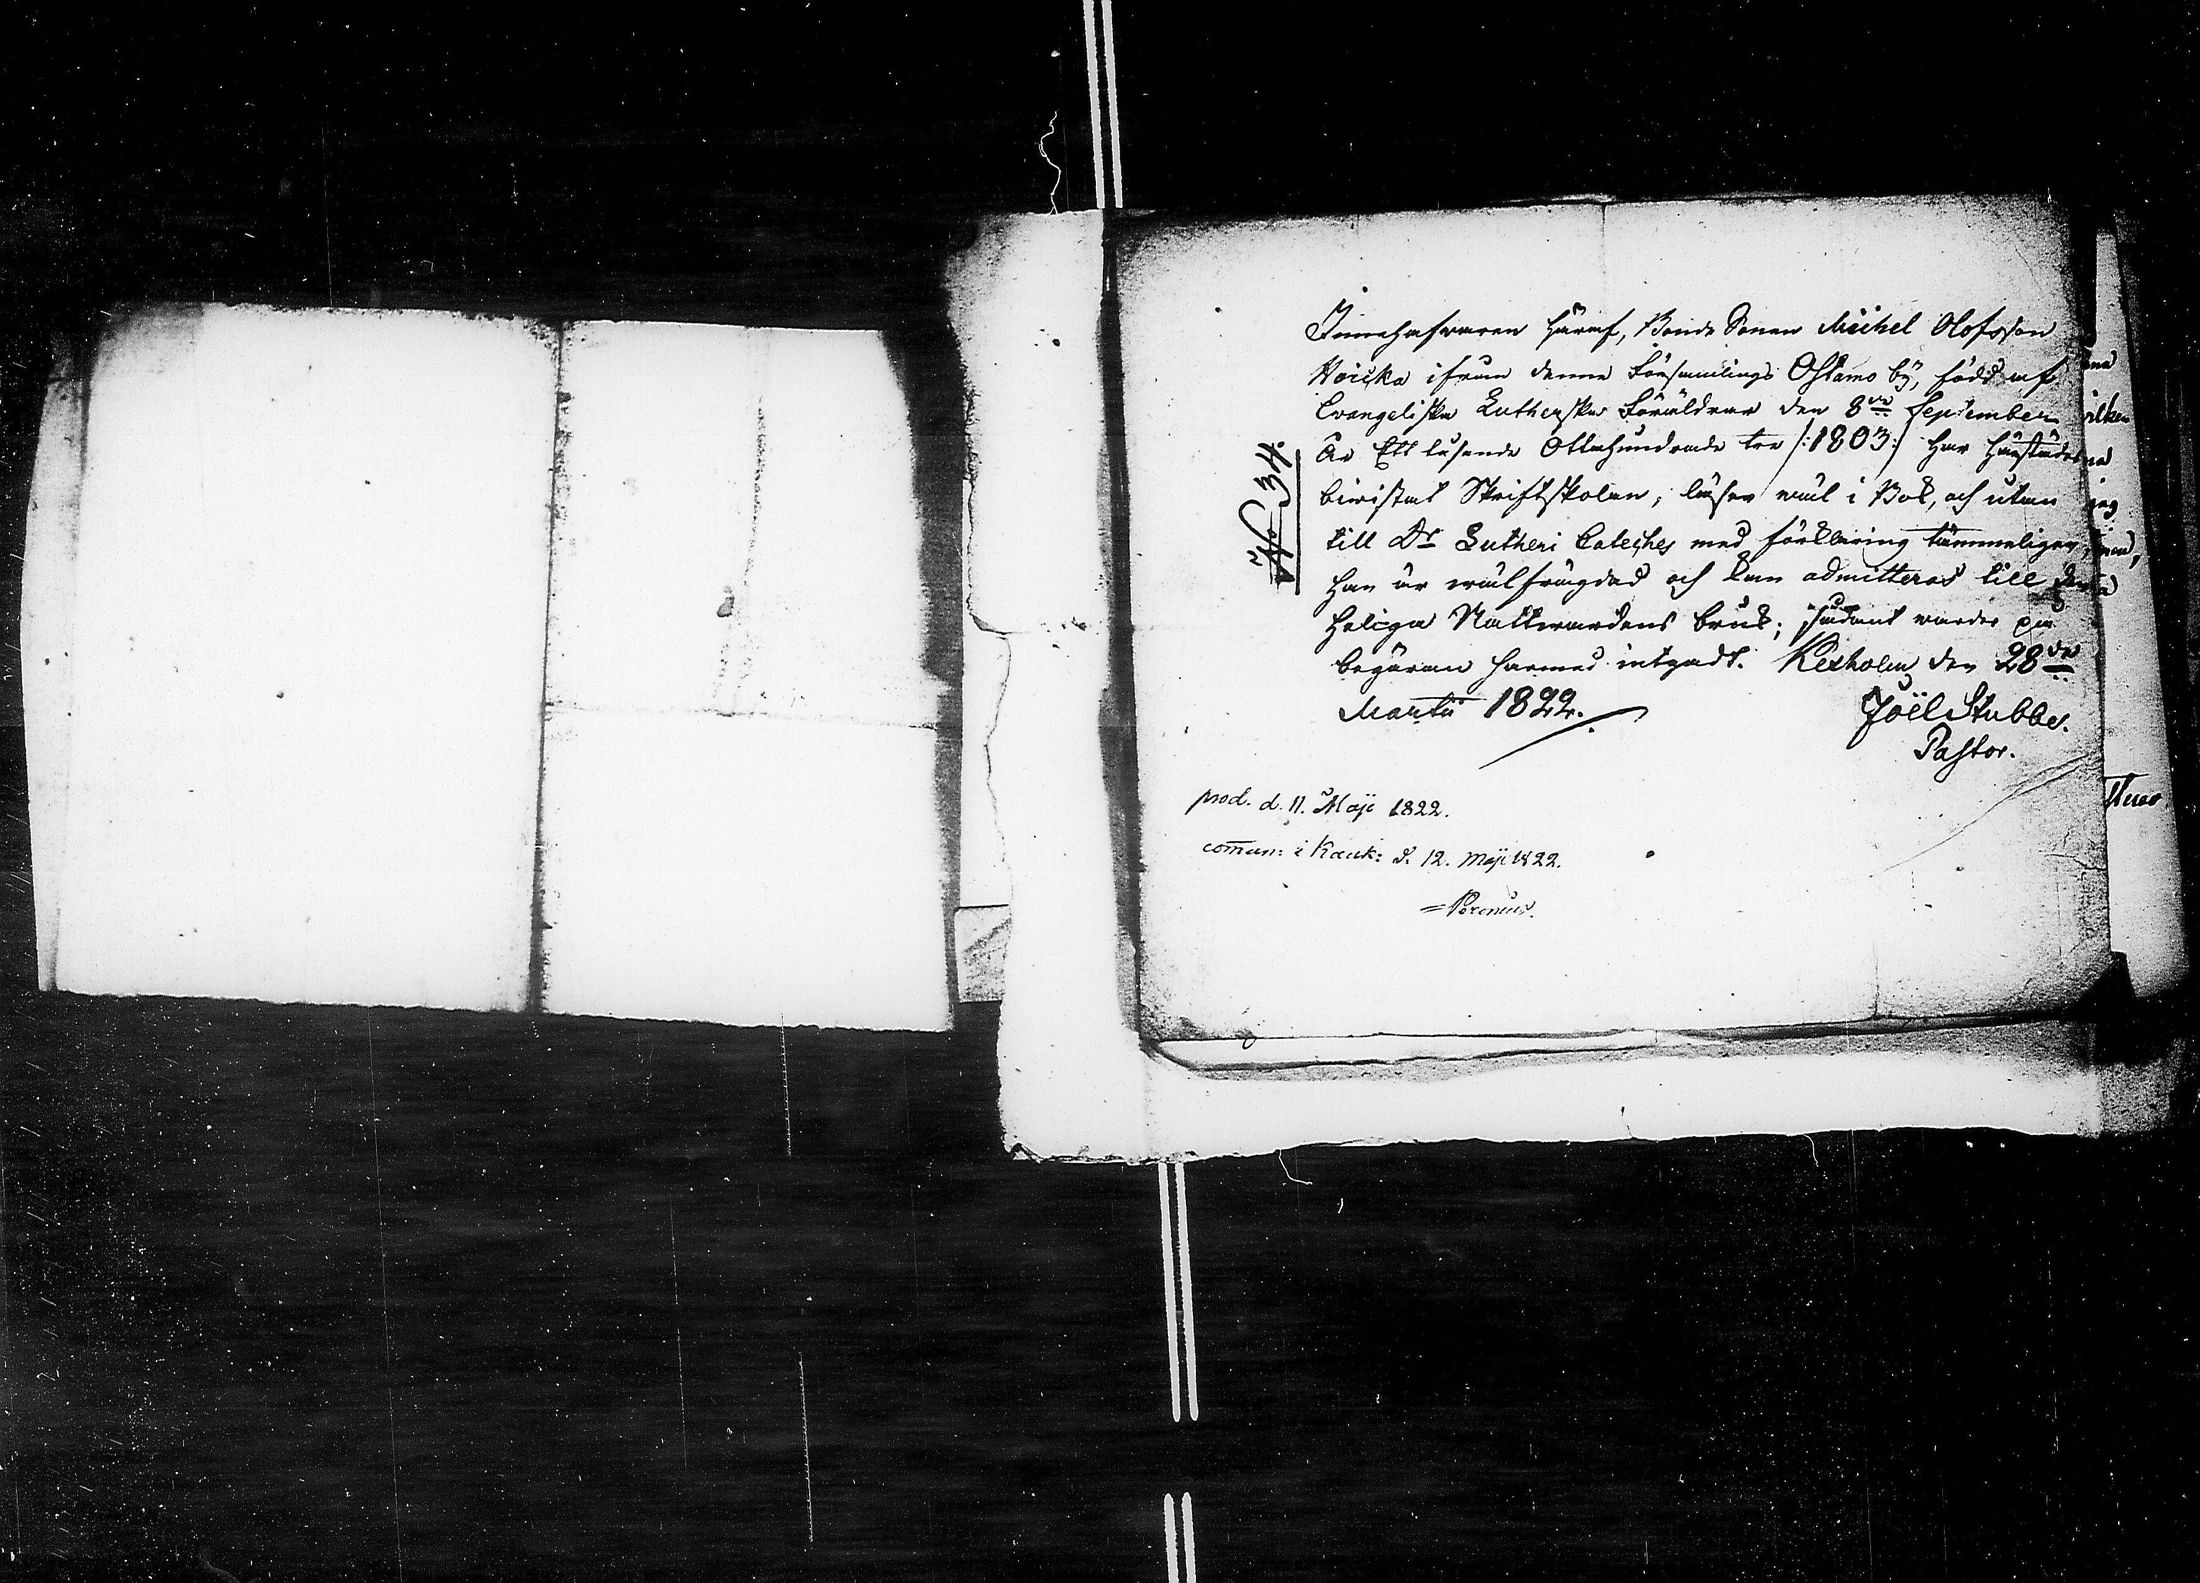 No 34.
Innehafwaren häraf, Bonde Sonen Michel Olofsson
Hoicka ifrån denna Församlings Ostamo by, född af
Evangeliska Lutherska Föräldrar den 8de September
År Ett tusende Ottahundrade tre /:1803:/ har härstädes
biwistat Skriftskolan, läser wäl i Bok, och utan
till Dr Lutheri Cateches med förklaring tämmeligen,
han är wälfrägdad och kan admitteras till den
Heliga Nattwardens bruk; sådant warder på
begäran härmed intygadt. Kexholm den 28de
Martii 1822.
Joël Stubbe.
Pastor.
prod. d. 11. Maji 1822.
comun: i Kauk: d. 12. Maji 1822.